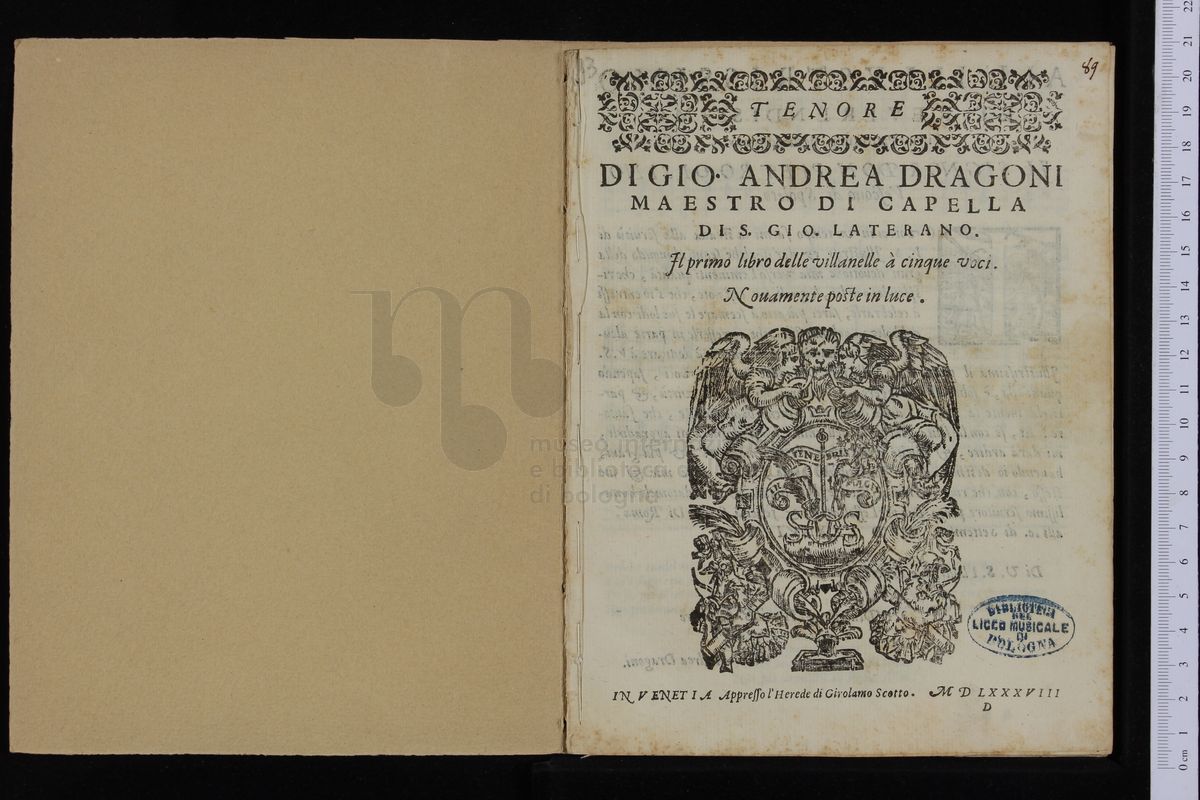 89
TENORE
DI GIO. ANDREA DRAGONI
MAESTRO DI CAPELLA
DI S. GIO. LATERANO.
Il primo libro delle villanelle à cinque voci.
Nouamente poste in luce.
TENEBRIS
museo intern
e biblioteca
di bologna
BIBLIOTECA
DEL
LICEO MUSICALE
DI
BOLOGNA
IN VENETIA Appresso l'Herede di Girolamo Scotto. M D LXXXVIII
D
0 cm 1 2 3 4 5 6 7 8 9 10 11 12 13 14 15 16 17 18 19 20 21 22